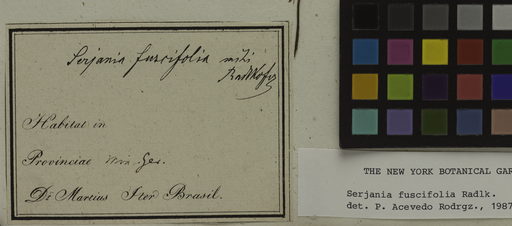 Serjania fuscifolia mihi
Radlkofer
Habitat in
Provinciae Min. Ger.
Dr Martius Iter Brasil.
THE NEW YORK BOTANICAL GAR
Serjania fuscifolia Radlk.
det. P. Acevedo Rodrgz., 1987